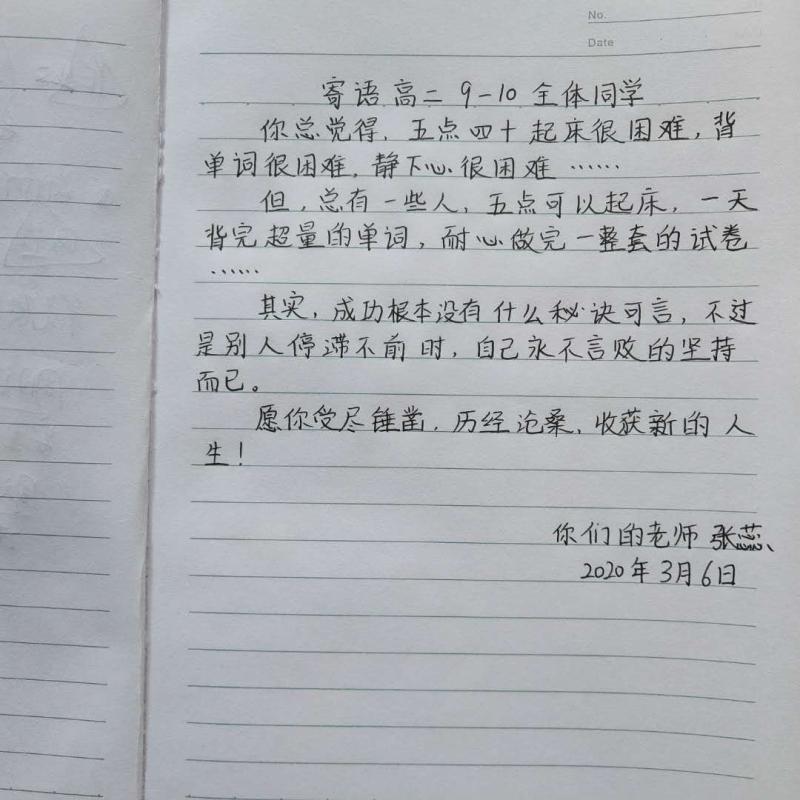 No.
Date
寄语高二 9-10 全体同学
你总觉得，五点四十起床很困难，背
单词很困难，静下心很困难……
但，总有一些人，五点可以起床，一天
背完超量的单词，耐心做完一整套的试卷
……
其实，成功根本没有什么秘诀可言，不过
是别人停滞不前时，自己永不言败的坚持
而已。
愿你受尽锤凿，历经沧桑，收获新的人
生！
你们的老师 张蕊
2020年3月6日